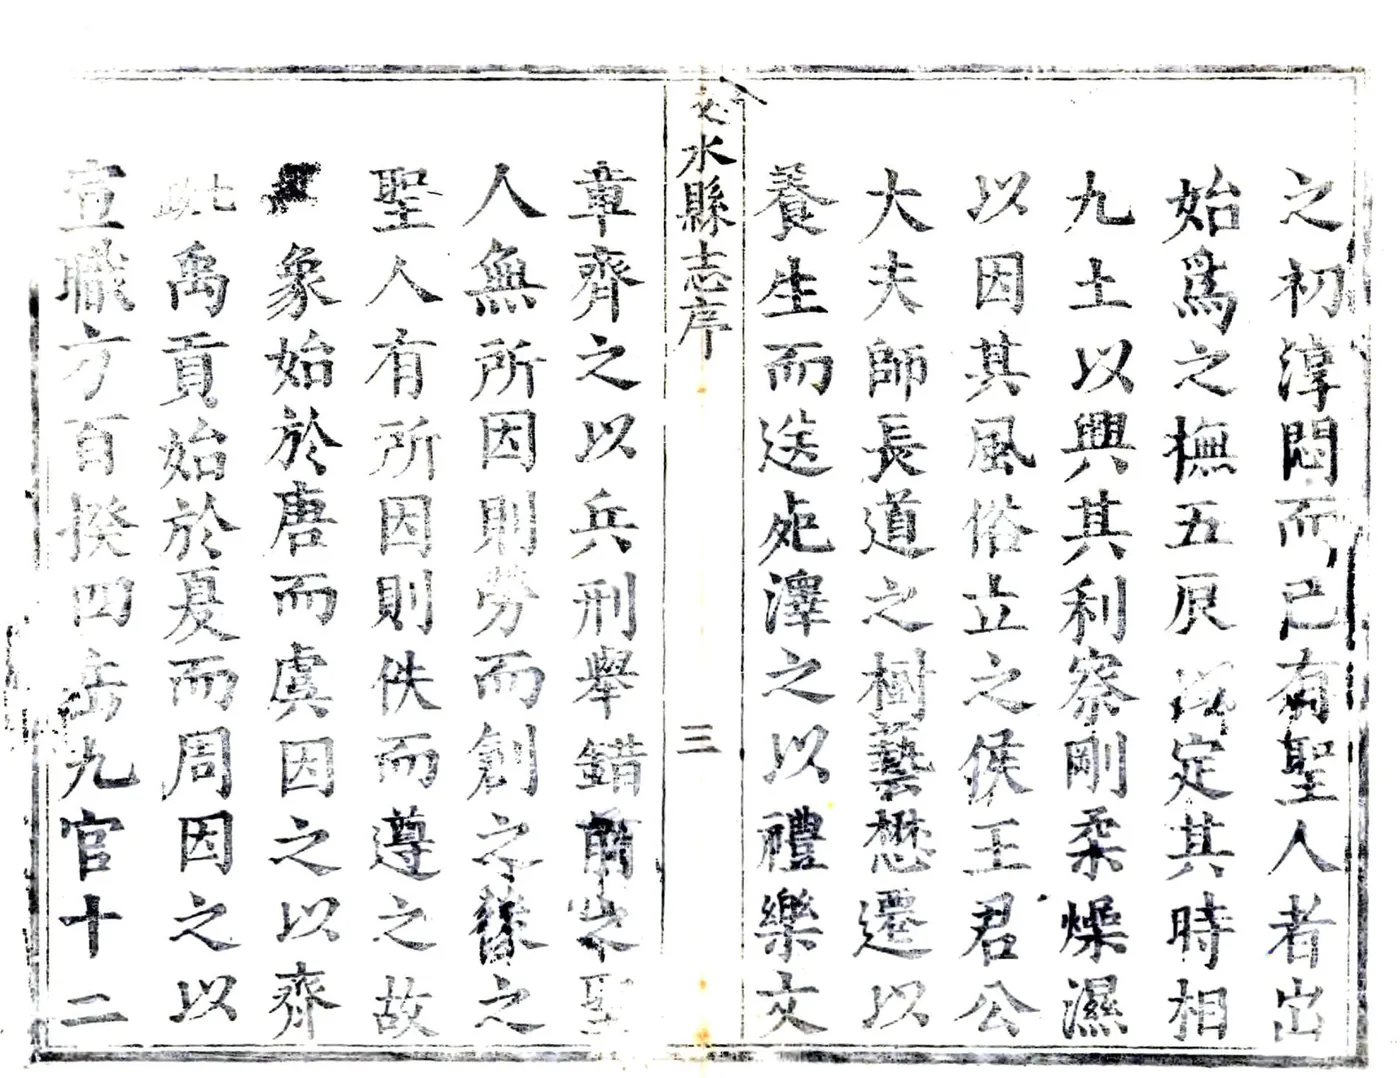 之初淳悶而已有聖人者出
始爲之撫五辰以定其時相
九土以興其利察剛柔燥濕
以因其風俗立之侯王君公
大夫師長道之樹藝懋遷以
養生而送死澤之以禮樂文
水縣志序
三
章齊之以兵刑舉錯前之聖
人無所因則勞而創之後之
聖人有所因則佚而遵之故
象始於唐而虞因之以齊
七政禹貢始於夏而周因之以
宣職方百揆四岳九官十二